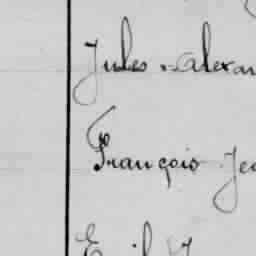 Jules Alexan
François Je
Emil J